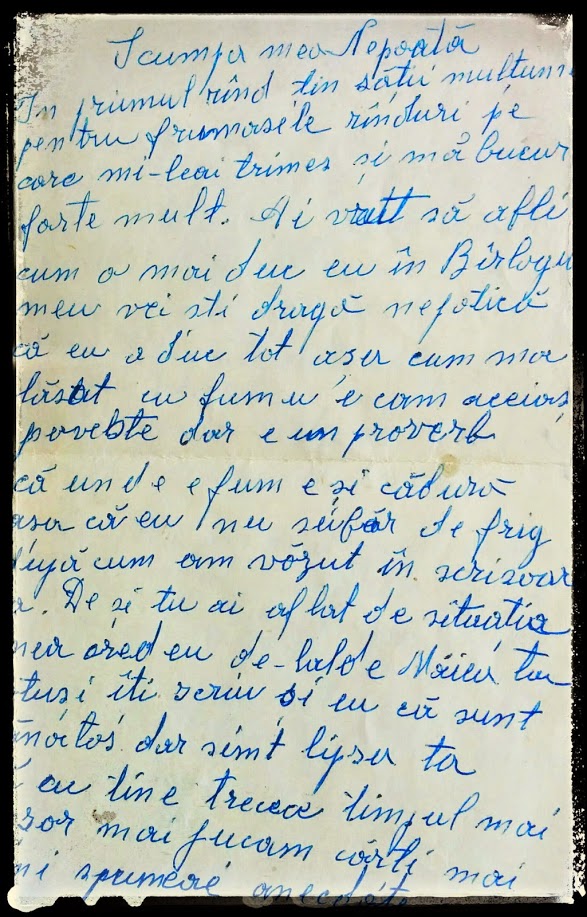 Scumpa mea Nepoată
In primul rînd țin sătii multume
pentru frumosele rînduri pe
care mi-leai trimes și mă bucur
forte mult. Ai vrutt să afli
cum o mai duc eu în Bîrlogu
meu vei sti dragă nepotică
că eu o duc tot așa cum ma
lăsat cu fumu e cam acceias
povebte dar e un proverb
că unde e fum e și căldură
asa că eu nu sufăr de frig
după cum am văzut în scrisoar
a. De si tu ai aflat de situația
mea cred eu de-lalde Măica ta
tuși îti scriu și eu că sunt
ănătos dar simt lipsa ta
cu tine trecea timpul mai
sor mai jucam cărti mai
mi spuneai anecdote